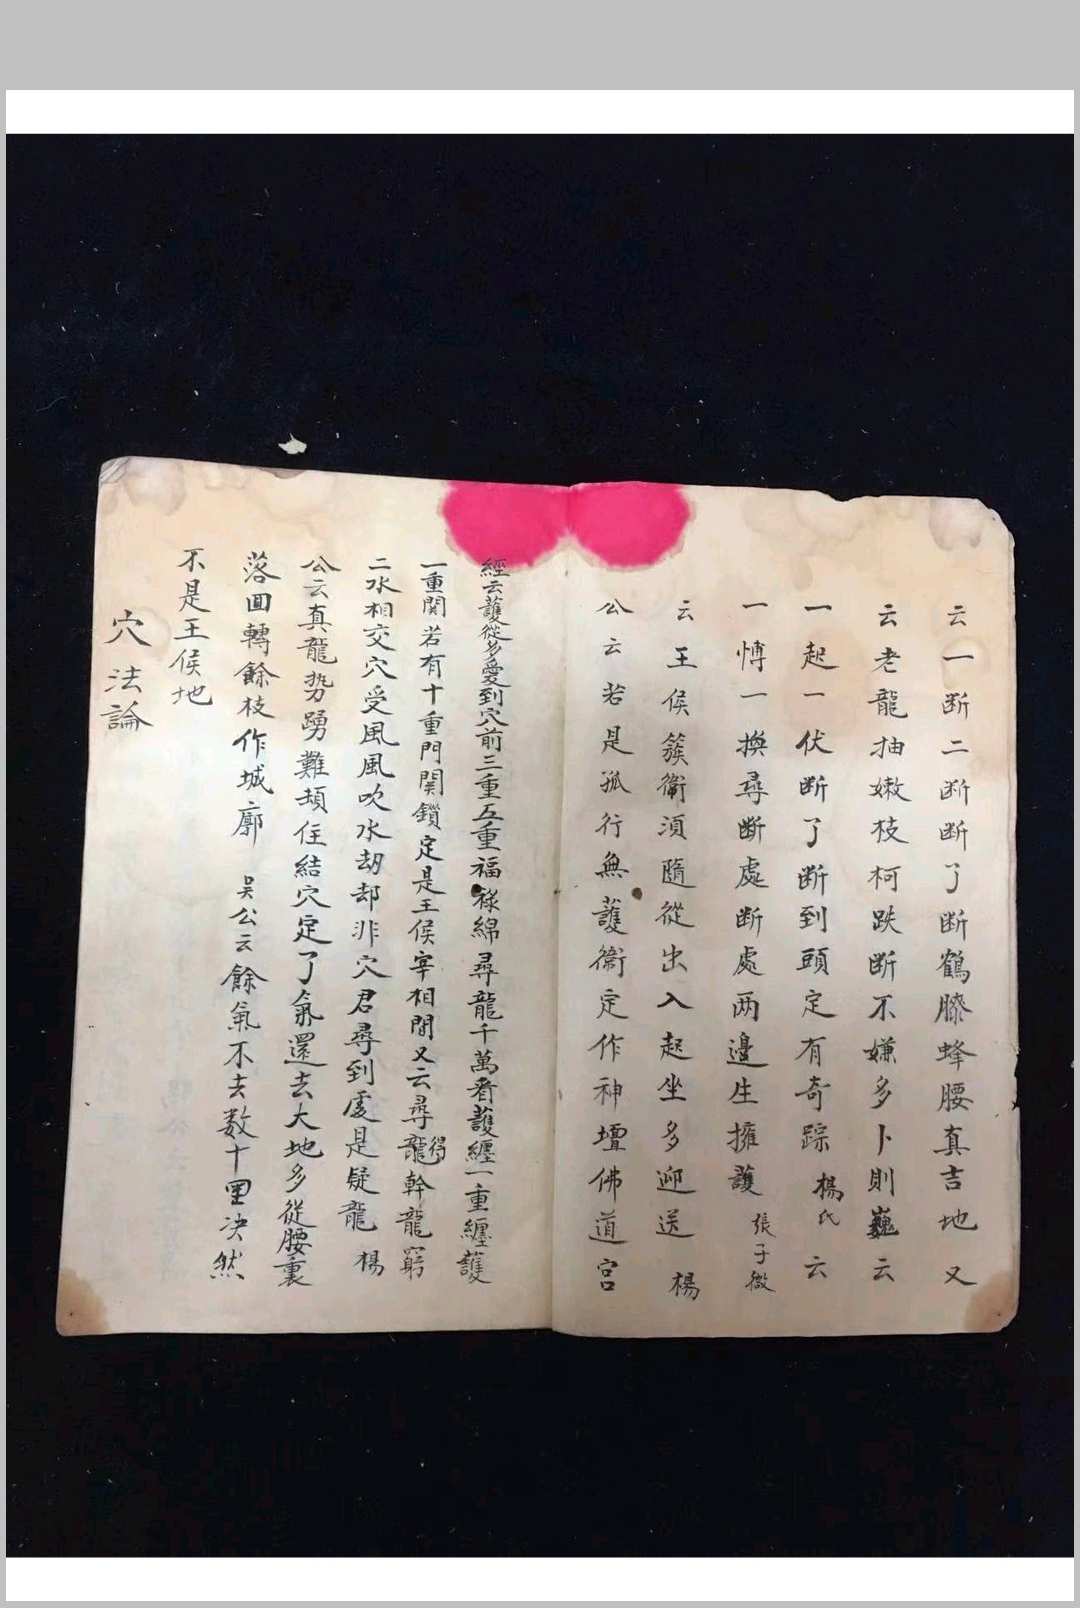 云一断二断断了断鶴膝蜂腰真吉地又
云老龍抽嫩枝柯跌断不嫌多卜則巍云
一起一伏断了断到頭定有奇踪楊氏云
一愽一換尋断處断處两邉生擁護張子微
云王侯簇衛湏隨從出入起坐多迎送楊
公云若是孤行無護衛定作神壇佛道宫
經云護從多愛到穴前三重五重福祿綿尋龍千萬看護纏一重纏護
一重関若有十重門関鎖定是王侯宰相間又云尋得龍幹龍窮
二水相交穴受風風吹水刧却非穴君尋到處是疑龍楊
公云真龍势踴難頓住結穴定了氣還去大地多從腰裏
落囬轉餘枝作城廓吴公云餘氣不去数十里决然
不是王侯地
穴法論